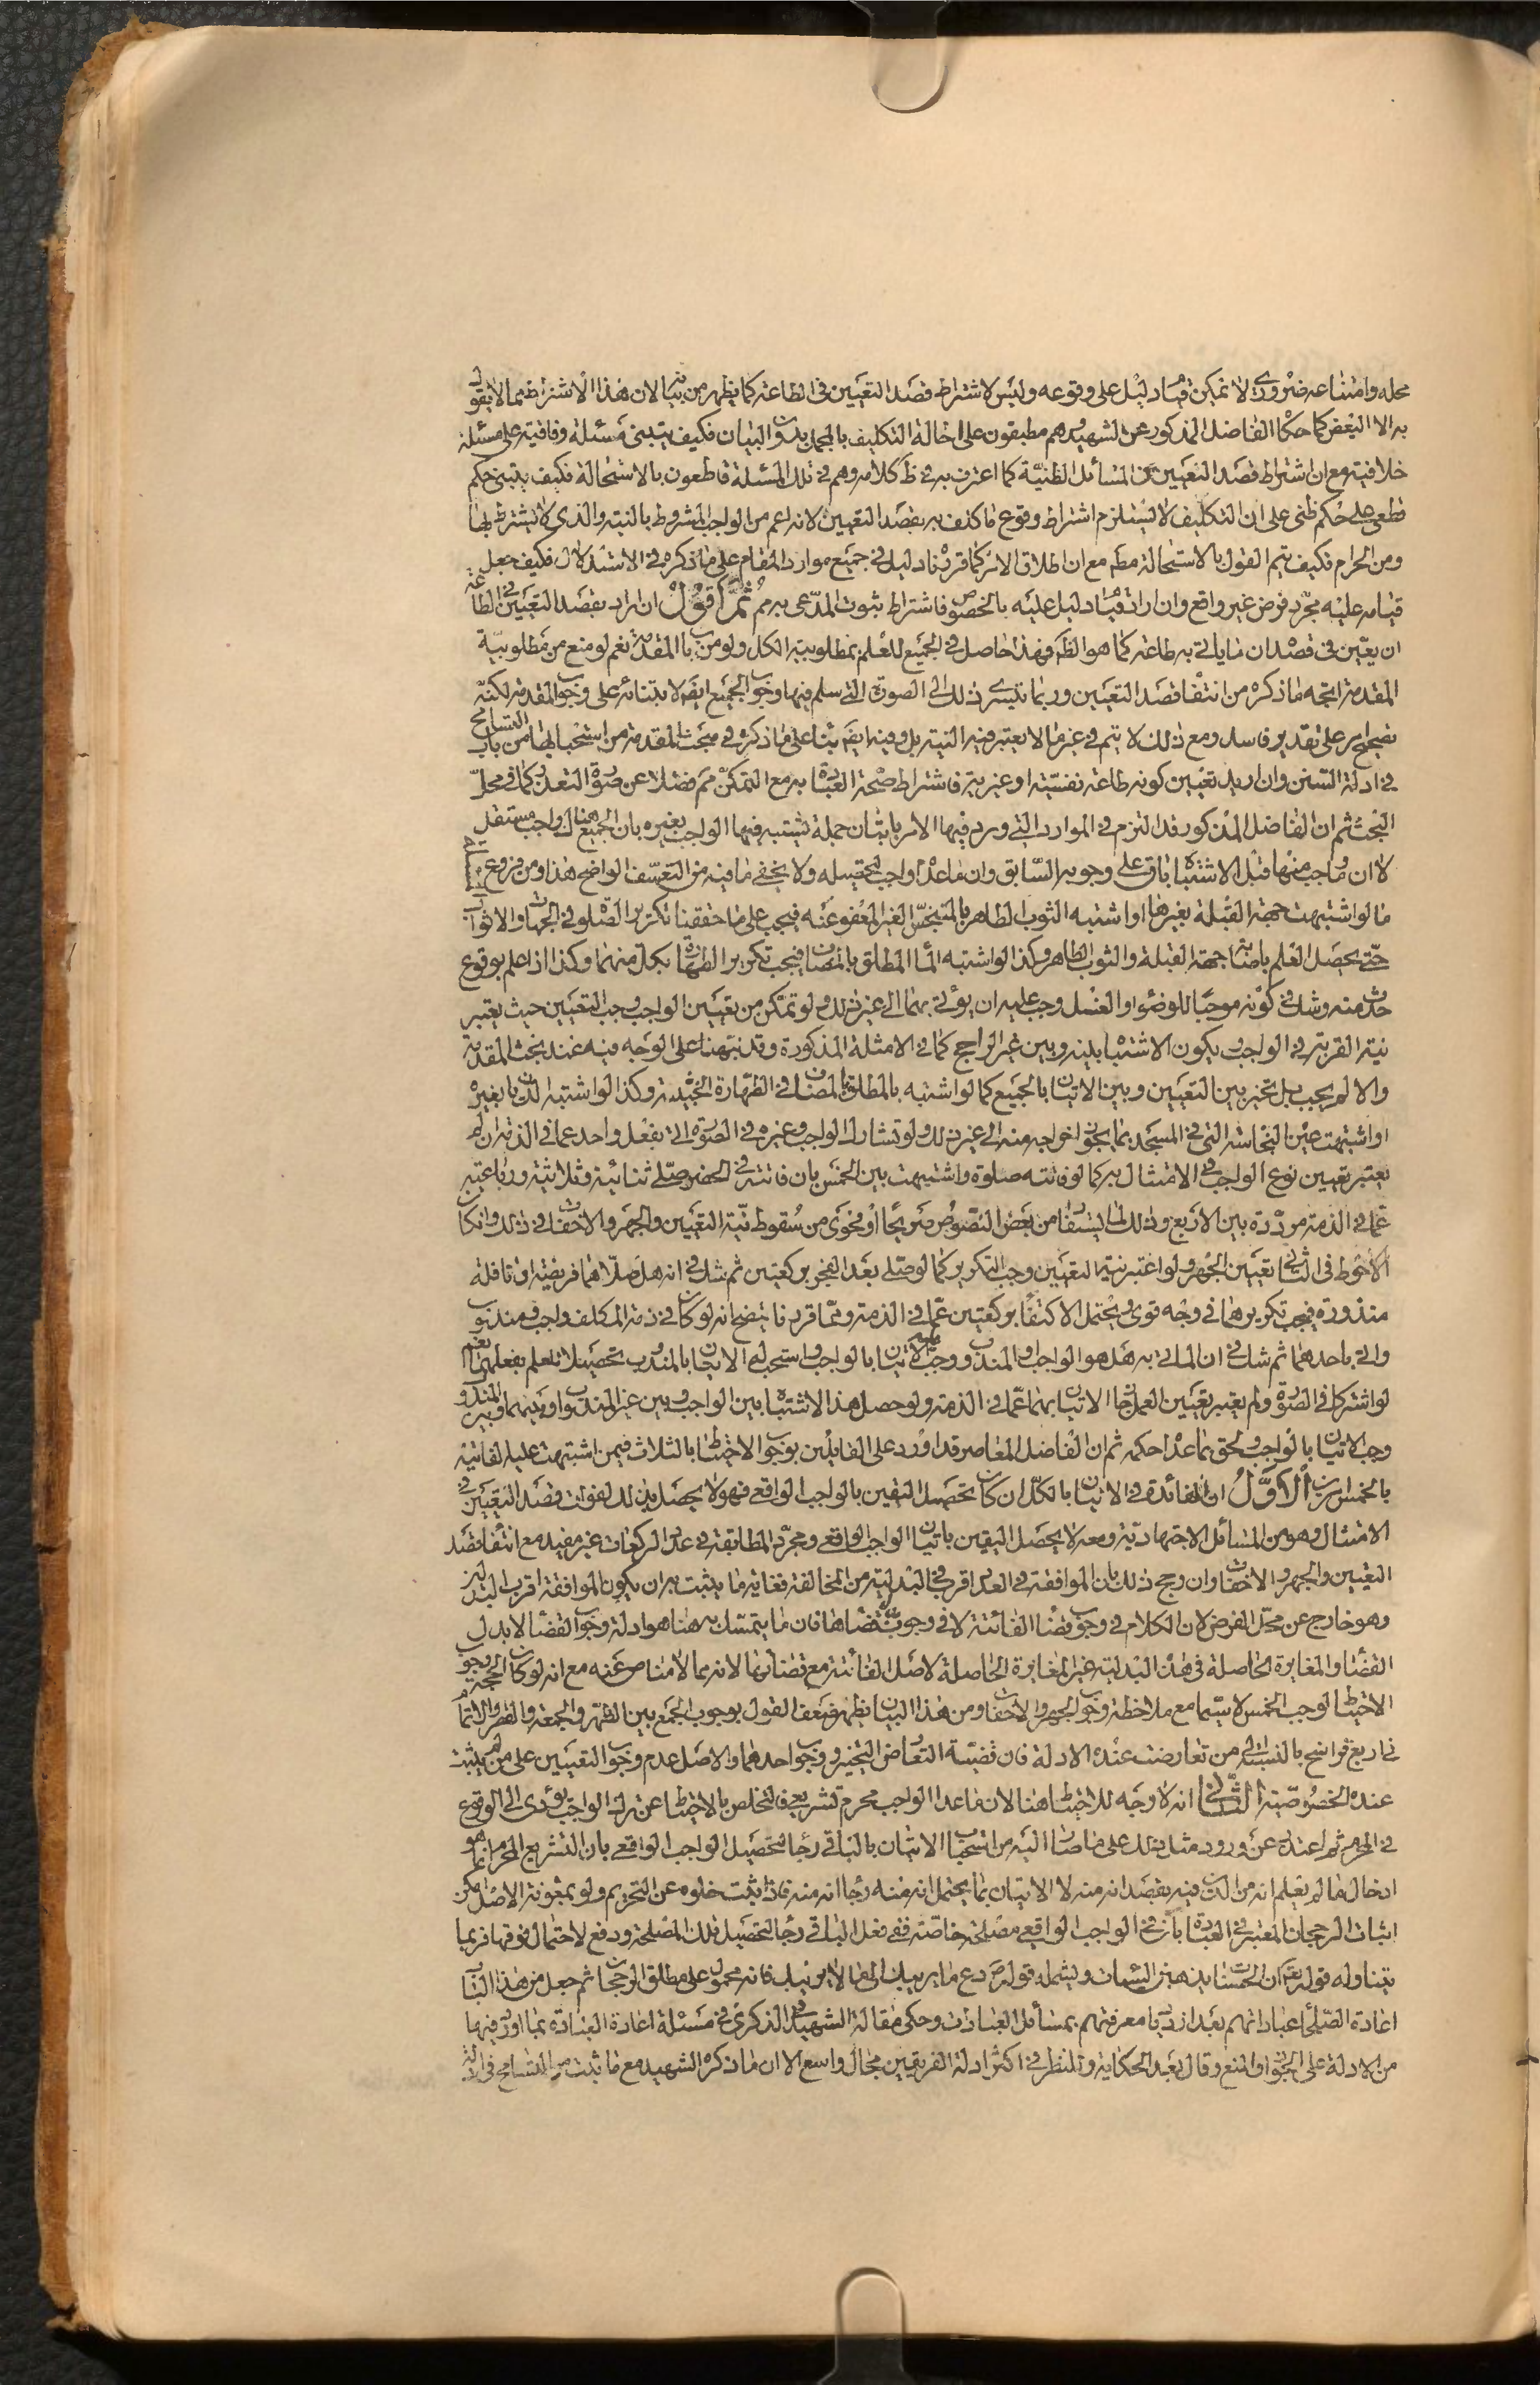 محله وامتناعه ضروری لا تمکن قیام دلیل علی وقوعه ولیس لاشتراط قصد التعیین فی الطاعة کما یظهر من بیانه لان هذا الاشتراط مما لا یقول
به الا البعض کما حکاه الفاضل المذکور عن الشهید وهم مطبقون علی احالة التکلیف بالمجمل بدون البیان فکیف یبتنی مسئلة وفاقیة علی مسئلة
خلافیة مع ان اشتراط قصد التعیین من المسائل الظنیة کما اعترف به فی ظ کلامه وهم فی تلک المسئلة قاطعون بالاستحالة فکیف یبتنی حکم
قطعی علی حکم ظنی علی ان التکلیف لا یستلزم اشتراط وقوع ما کلف به بقصد التعیین لانه اعم من الواجب المشروط بالنیة والذی لا یشترط بها
ومن الحرام فکیف یتم القول بالاستحالة مطم مع ان اطلاق الامر کما قررناه دلیل فی جمیع موارد المقام علی ما ذکره فی الاستدلال فکیف جعل
قیامه علیه مجرد فرض غیر واقع وان اراد قیام دلیل علیه بالخصوص فاشتراط ثبوت المدعی به مم ثم اقول ان اراد بقصد التعیین فی الطاعة
ان یعین فی قصده ان ما یاتی به طاعة کما هو الظ فهذا حاصل فی الجمیع للعلم بمطلوبیة الکل ولو من باب المقدمة نعم لو منع من مطلوبیة
المقدمة اتجه ما ذکره من انتفاء قصد التعیین وربما یسری ذلک الی الصورة التی سلم فیها وجوب الجمیع ایضا لابتنائه علی وجوب المقدمة لکنه
تصحیح امر علی تقدیر فاسد ومع ذلک لا یتم فی غیر ما لا یعتبر فیه النیة بل وفیه ایضا بناء علی ما ذکره فی مبحث المقدمة من استحبابها من باب التسامح
فی ادلة السنن وان ارید تعیین کونه طاعة نفسیة او غیریة فاشتراط صحة العبادة به مع التمکن مم فضلا عن صورة التعذر کما فی محل
البحث ثم ان الفاضل المذکور قد التزم فی الموارد التی ورد فیها الامر باتیان جملة یشتبه فیها الواجب بغیره بان الجمیع هناک واجب مستقل
لا ان ما وجب منها قبل الاشتباه باق علی وجوبه السابق وان ما عداه واجب لتحصیله ولا یخفی ما فیه من التعسف الواضح هذا ومن فروع
ما لو اشتبهت جهة القبلة بغیرها او اشتبه الثوب الطاهر بالمتنجس الغیر المعفو عنه فیجب علی ما حققنا تکریر الصلوة فی الجهات والاثواب
حتی یحصل العلم باصابة جهة القبلة والثوب الطاهر وکذا لو اشتبه الماء المطلق بالمضاف فیجب تکریر الطهارة بکل منهما وکذا اذا علم بوقوع
حدث منه وشک فی کونه موجبا للوضوء او الغسل وجب علیه ان یؤتی بهما الی غیر ذلک ولو تمکن من تعیین الواجب وجب التعیین حیث یعتبر
نیة القربة فی الواجب ویکون الاشتباه بینه وبین غیر الراجح کما فی الامثلة المذکورة وقد نبهنا علی الوجه فیه عند بحث المقدمة
والا لم یجب بل تخیر بین التعیین وبین الاتیان بالجمیع کما لو اشتبه المطلق بالمضاف فی الطهارة الخبثیة وکذا لو اشتبه الدین بغیره
او اشتبهت عین النجاسة التی فی المسجد بما یجوز اخراجه منه الی غیر ذلک ولو تشارک الواجب وغیره فی الصورة اتی بفعل واحد عما فی الذمة ان لم
یعتبر تعیین نوع الواجب فی الامتثال به کما لو فاتته صلوة واشتبهت بین الخمس بان فاتته فی الحضر صلی ثنائیة وثلاثیة ورباعیة
عما فی الذمة مرددة بین الاربع وذلک لما یستفاد من بعض النصوص صریحا او فحوی من سقوط نیة التعیین والجهر والاخفات فی ذلک وان کان
الاحوط فی الثانی تعیین الجهر ولو اعتبر نیة التعیین وجب التکریر کما لو صلی بعد الفجر برکعتین ثم شک فی انه هل صلاهما فریضة او نافلة
منذورة فیجب تکریرهما فی وجه قوی ویحتمل الاکتفاء برکعتین عما فی الذمة ومما قررنا یتضح انه لو کان فی ذمة المکلف واجب ومندوب
واتی باحدهما ثم شک فی ان الماتی به هل هو الواجب او المندوب وجب علیه الاتیان بالواجب واستحب له الاتیان بالمندوب تحصیلا للعلم بفعلهما نعم
لو اشترکا فی الصورة ولم یعتبر تعیین العمل جاز الاتیان بهما عما فی الذمة ولو حصل هذا الاشتباه بین الواجب وبین غیر المندوب او بینهما وبین المندوب
وجب الاتیان بالواجب ولحق بما عداه حکمه ثم ان الفاضل المعاصر قد اورد علی القایلین بوجوب الاحتیاط بالثلاث فیمن اشتبهت علیه الفائتة
بالخمس امرین الاول ان الفائدة فی الاتیان بالکل ان کان تحصیل الیقین بالواجب الواقعی فهو لا یحصل بذلک لفوات قصد التعیین فی
الامتثال وهو من المسائل الاجتهادیة ومعه لا یحصل الیقین باتیان الواجب الواقعی ومجرد المطابقة فی عدد الرکعات غیر مفید مع انتفاء قصد
التعیین والجهر والاخفات وان رجح ذلک بان الموافقة فی العدد اقرب فی البدلیة من المخالفة فغایة ما یثبت به ان یکون الموافقة اقرب البدلین
وهو خارج عن محل الفرض لان الکلام فی وجوب قضاء الفائتة لا فی وجوب بدل قضائها فان ما یتمسک به هنا هو ادلة وجوب القضاء لا بدل
القضاء والمغایرة الحاصلة فی هذه البدلیة غیر المغایرة الحاصلة لاصل الفائتة مع قضائها لانه مما لا مناص عنه مع انه لو کان الحجة وجوب
الاحتیاط لوجب الخمس لا سیما مع ملاحظة وجوب الجهر والاخفات ومن هذا البیان یظهر ضعف القول بوجوب الجمع بین الظهر والجمعة والقصر والاتمام
فی اربع فراسخ بالنسبة الی من تعارضت عنده الادلة فان قضیة التعارض التخییر ووجوب احدهما والاصل عدم وجوب التعیین علی من لم یثبت
عنده الخصوصیة الثانی انه لا وجه للاحتیاط هنا لان ما عدا الواجب محرم تشریعی فالتخلص بالاحتیاط عن ترک الواجب یؤدی الی الوقوع
فی المحرم ثم اعتذر عن ورود مثل ذلک علی ما صار الیه من استحباب الاتیان بالباقی رجاء لتحصیل الواجب الواقعی بان التشریع المحرم انما هو
ادخال ما لم یعلم انه من الدین فیه بقصد انه منه لا الاتیان بما یحتمل انه منه رجاء انه منه فاذا ثبت خلوه عن التحریم ولو بمعونة الاصل امکن
اثبات الرجحان المعتبر فی العبادة بان فی الواجب الواقعی مصلحة خاصة ففی فعل الباقی رجاء لتحصیل تلک المصلحة ودفع لاحتمال فوقها فربما
یتناوله قوله تعم ان الحسنات یذهبن السیئات ویشمله قوله ص دع ما یریبک الی ما لا یریبک فانه محمول علی مطلق الرجحان ثم جعل من هذا الباب
اعادة الصلحاء عباداتهم بعد ازدیاد معرفتهم بمسائل العبادات وحکی مقالة الشهید فی الذکری فی مسئلة اعادة العبادة بما اورد فیها
من الادلة علی الجواز والمنع وقال بعد الحکایة وللنظر فی اکثر ادلة الفریقین مجال واسع الا ان ما ذکره الشهید مع ما ثبت من التسامح فی ادلة